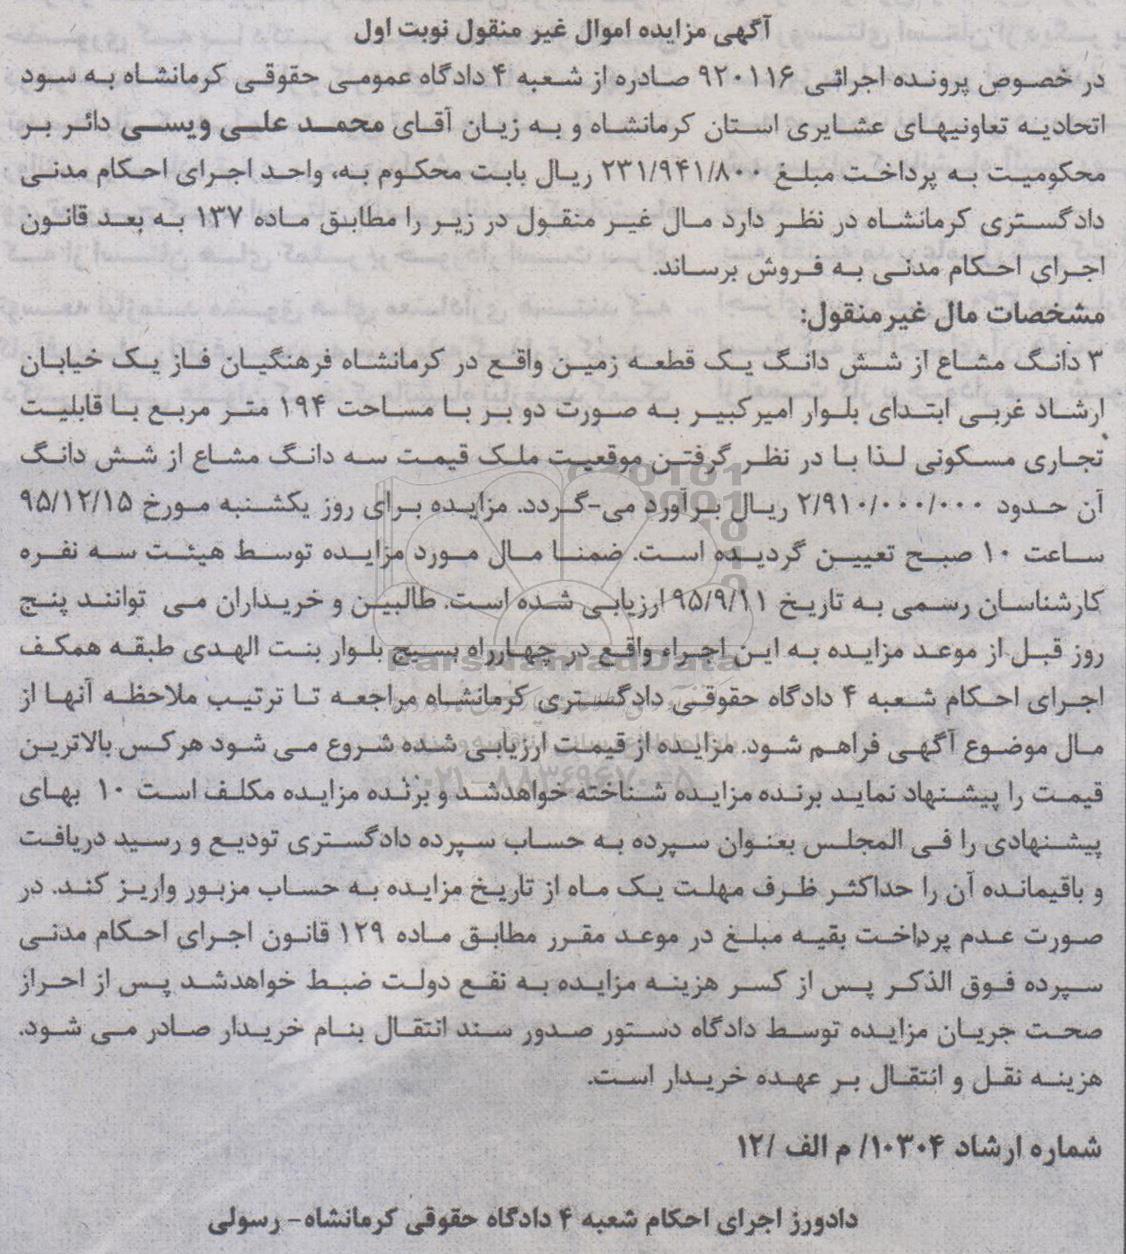 آگهی مزایده اموال غیر منقول نوبت اول
در خصوص پرونده اجرائی ۹۲۰۱۱۶ صادره از شعبه ۴ دادگاه عمومی حقوقی کرمانشاه به سود
اتحادیه تعاونیهای عشایری استان کرمانشاه و به زیان آقای محمد علی ویسی دائر بر
محکومیت به پرداخت مبلغ ۲۳۱/۹۴۱/۸۰۰ ریال بابت محکوم به، واحد اجرای احکام مدنی
دادگستری کرمانشاه در نظر دارد مال غیر منقول در زیر را مطابق ماده ۱۳۷ به بعد قانون
اجرای احکام مدنی به فروش برساند.
مشخصات مال غیرمنقول:
۳ دانگ مشاع از شش دانگ یک قطعه زمین واقع در کرمانشاه فرهنگیان فاز یک خیابان
ارشاد غربی ابتدای بلوار امیرکبیر به صورت دو بر با مساحت ۱۹۴ متر مربع با قابلیت
تجاری مسکونی لذا با در نظر گرفتن موقعیت ملک قیمت سه دانگ مشاع از شش دانگ
آن حدود ۲/۹۱۰/۰۰۰/۰۰۰ ریال برآورد می-گردد. مزایده برای روز یکشنبه مورخ ۹۵/۱۲/۱۵
ساعت ۱۰ صبح تعیین گردیده است. ضمنا مال مورد مزایده توسط هیئت سه نفره
کارشناسان رسمی به تاریخ ۹۵/۹/۱۱ ارزیابی شده است. طالبین و خریداران می توانند پنج
روز قبل از موعد مزایده به این اجراء واقع در چهارراه بسیج بلوار بنت الهدی طبقه همکف
اجرای احکام شعبه ۴ دادگاه حقوقی دادگستری کرمانشاه مراجعه تا ترتیب ملاحظه آنها از
مال موضوع آگهی فراهم شود. مزایده از قیمت ارزیابی شده شروع می شود هرکس بالاترین
قیمت را پیشنهاد نماید برنده مزایده شناخته خواهدشد و برنده مزایده مکلف است ۱۰ بهای
پیشنهادی را فی المجلس بعنوان سپرده به حساب سپرده دادگستری تودیع و رسید دریافت
و باقیمانده آن را حداکثر ظرف مهلت یک ماه از تاریخ مزایده به حساب مزبور واریز کند. در
صورت عدم پرداخت بقیه مبلغ در موعد مقرر مطابق ماده ۱۲۹ قانون اجرای احکام مدنی
سپرده فوق الذکر پس از کسر هزینه مزایده به نفع دولت ضبط خواهدشد پس از احراز
صحت جریان مزایده توسط دادگاه دستور صدور سند انتقال بنام خریدار صادر می شود.
هزینه نقل و انتقال بر عهده خریدار است.
شماره ارشاد ۱۰۳۰۴/ م الف /۱۲
دادورز اجرای احکام شعبه ۴ دادگاه حقوقی کرمانشاه- رسولی
ParsNamadData
۰۲۱-۸۸۳۴۹۶۷۰-۵